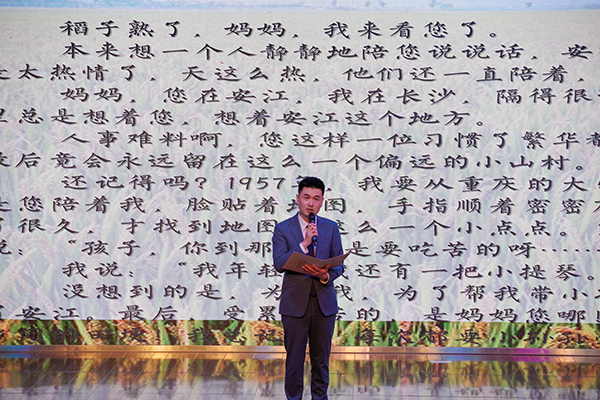 稻子熟了，妈妈，我来看您了。
本来想一个人静静地陪您说说话，安
太热情了，天这么热，他们还一直陪着，
妈妈，您在安江，我在长沙，隔得很
总是想着您，想着安江这个地方。
人事难料啊，您这样一位习惯了繁华都
后竟会永远留在这么一个偏远的小山村。
还记得吗？1957 我要从重庆的大
您陪着我，脸贴着地图，手指顺着密密
很久，才找到地图 么一个小点点。
：“孩子，你到那 是要吃苦的呀……
我说：“我年轻 还有一把小提琴。
没想到的是，为 ，为了帮我带小
安江。最后，受累 的 是妈妈您哪